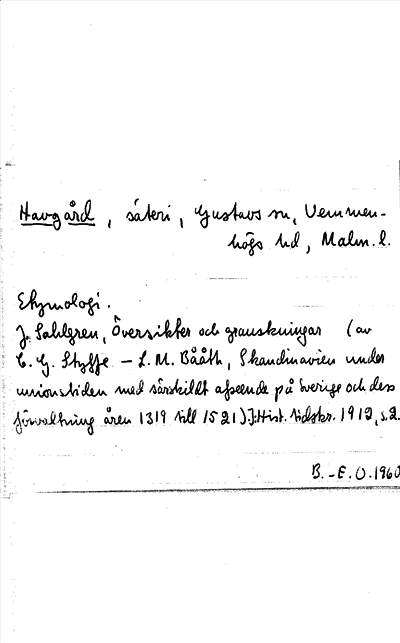 Havgård, säteri, Gustavs sn, Vemmen-
högs hd, Malm. l.
Etymologi.
J. Sahlgren, Översikter och granskningar (av
C. G. Styffe - L. M. Bååth, Skandinavien under
unionstiden med särskildt afseende på Sverige och dess
förvaltning åren 1319 till 1521) i Hist. tidskr. 1912, s. 2.
B.-E. O. 1960